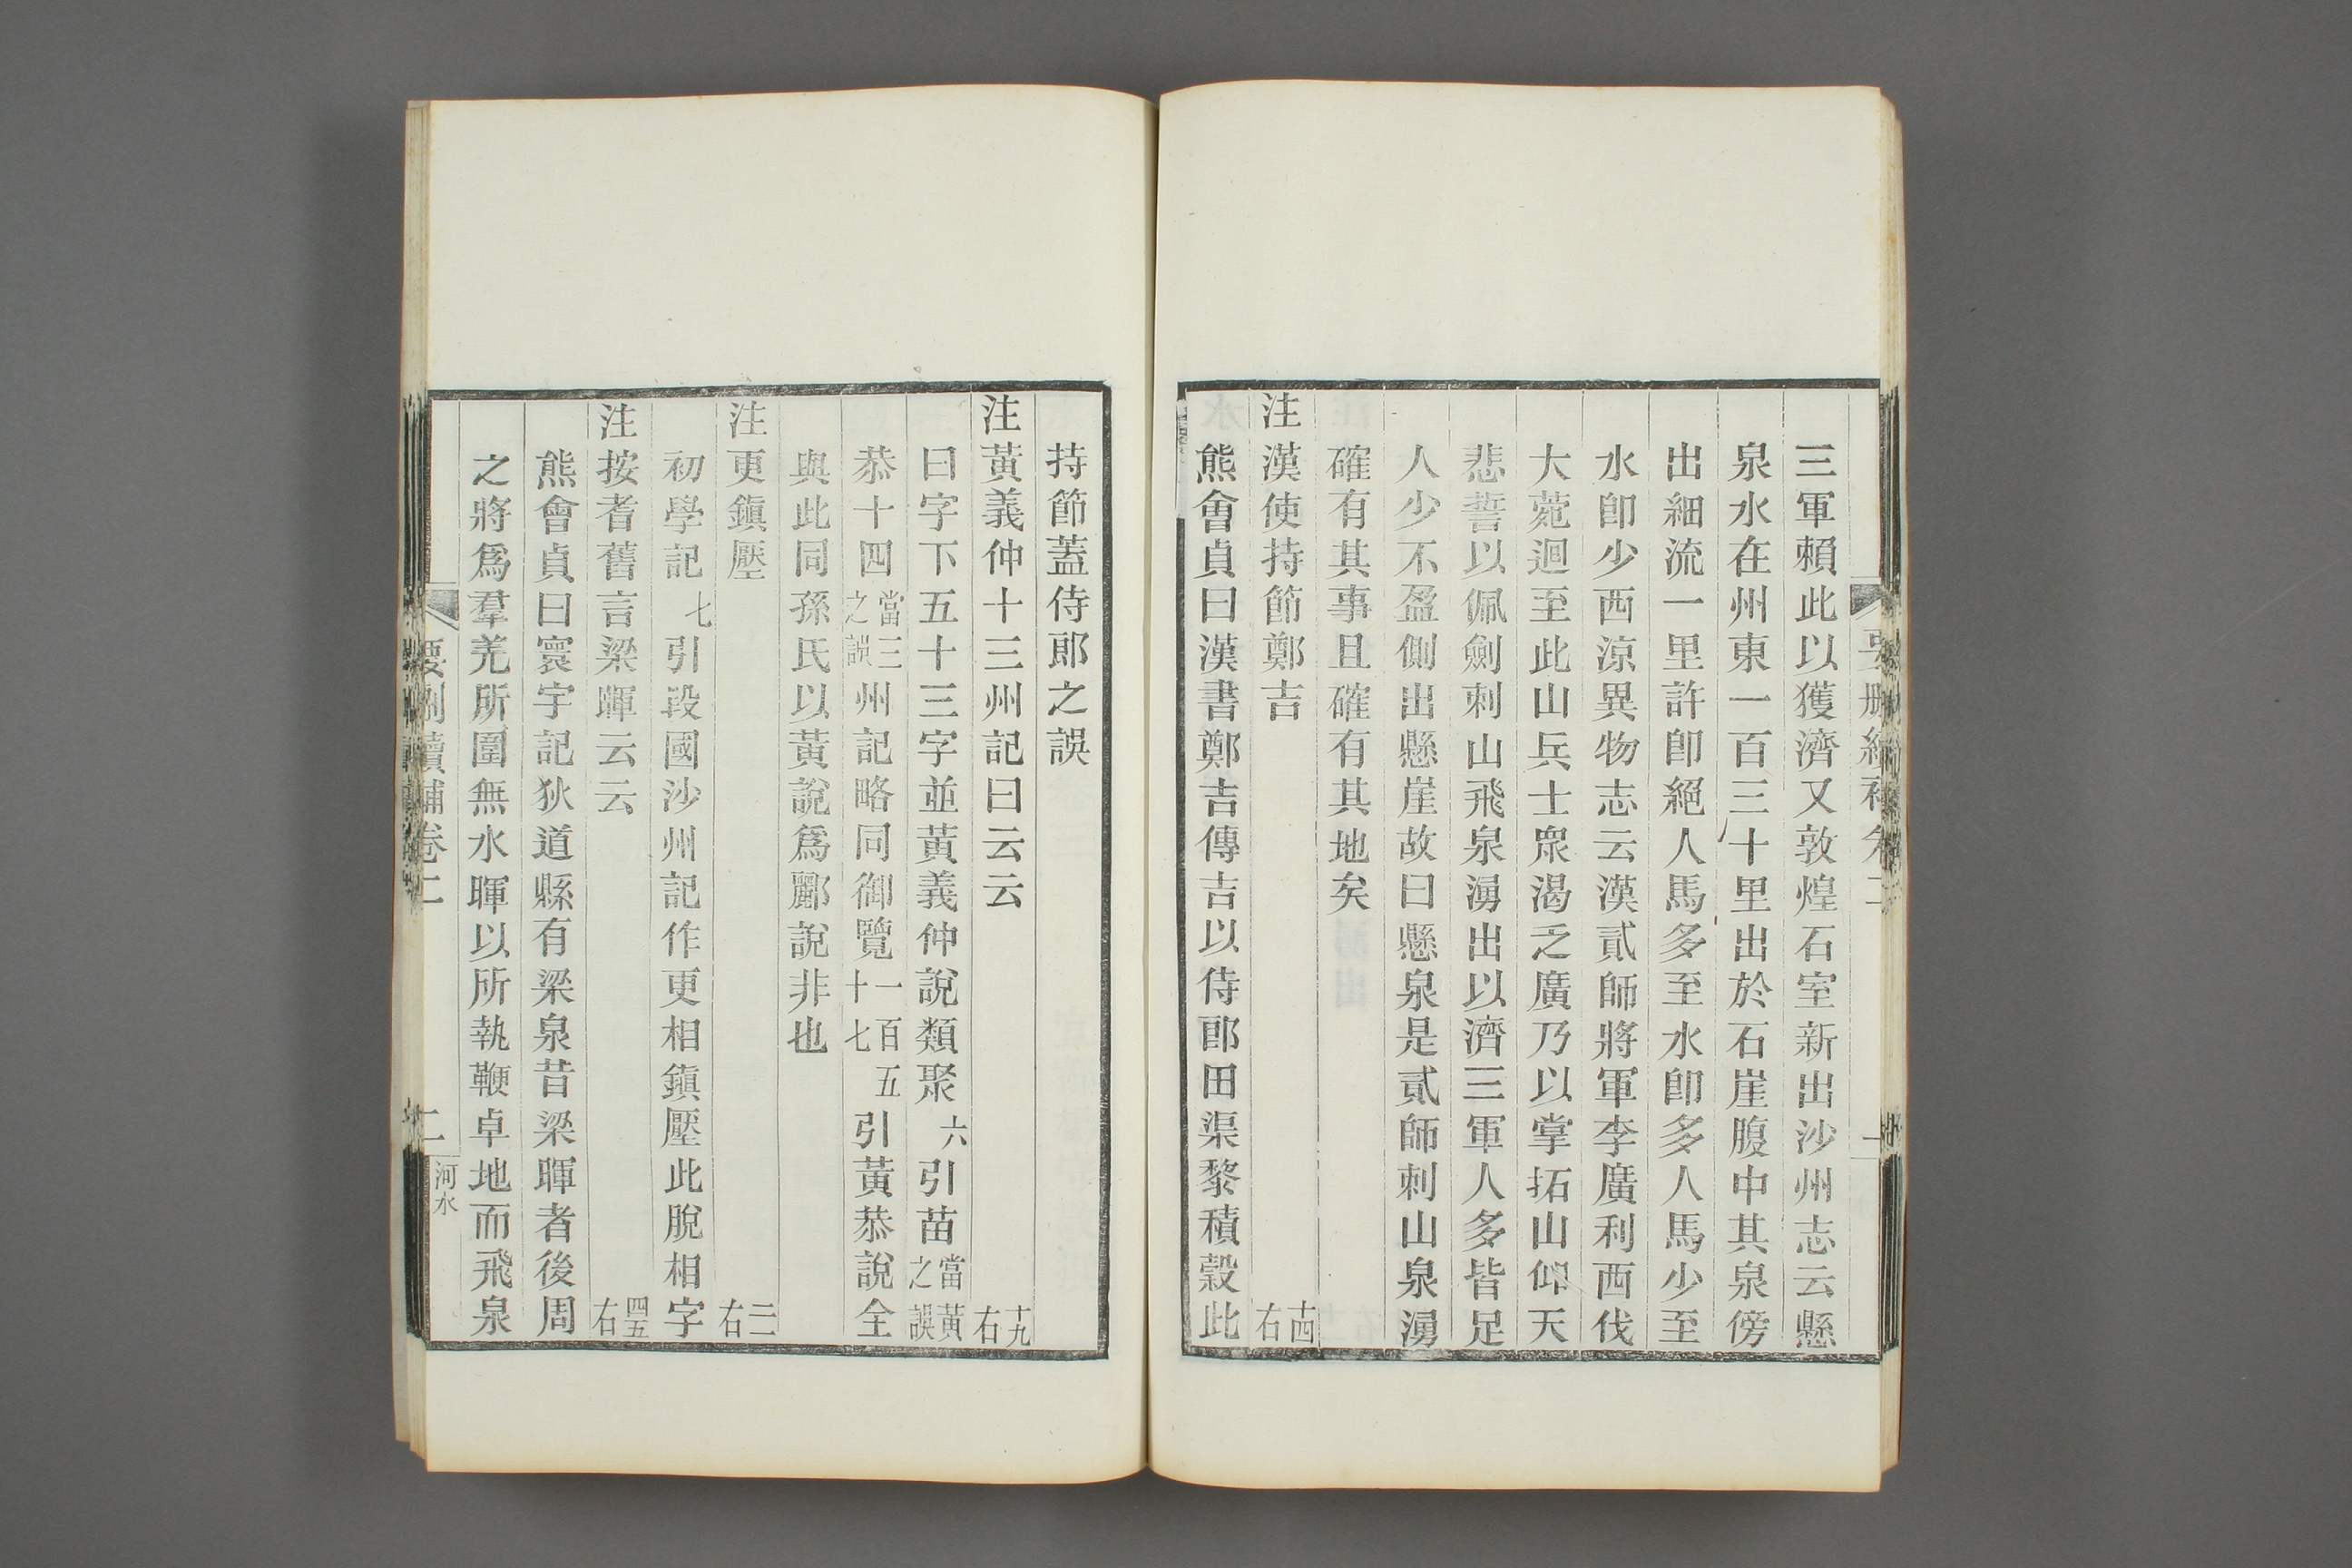 三軍賴此以獲濟又敦煌石室新出沙州志云懸
泉水在州東一百三十里出於石崖腹中其泉傍
出細流一里許卽絕人馬多至水卽多人馬少至
水卽少西涼異物志云漢貳師將軍李廣利西伐
大菀迴至此山兵士衆渴乏廣乃以掌拓山仰天
悲誓以佩劍刺山飛泉湧出以濟三軍人多皆足
人少不盈側出懸崖故曰懸泉是貳師刺山泉湧
確有其事且確有其地矣
注漢使持節鄭吉 十四右
熊會貞曰漢書鄭吉傳吉以侍郎田渠黎積穀此
持節蓋侍郎之誤
注黃義仲十三州記曰云云 十九右
曰字下五十三字並黃義仲說類聚六引苗當黃之誤
恭十四當三之誤州記略同御覽一百五十七引黃恭說全
與此同孫氏以黃說爲酈說非也
注更鎭壓 二二右
初學記七引段國沙州記作更相鎭壓此脫相字
注按耆舊言梁暉云云 四五右
熊會貞曰寰宇記狄道縣有梁泉昔梁暉者後周
之將爲羣羌所圍無水暉以所執鞭卓地而飛泉
要刪續補卷二
二
河水